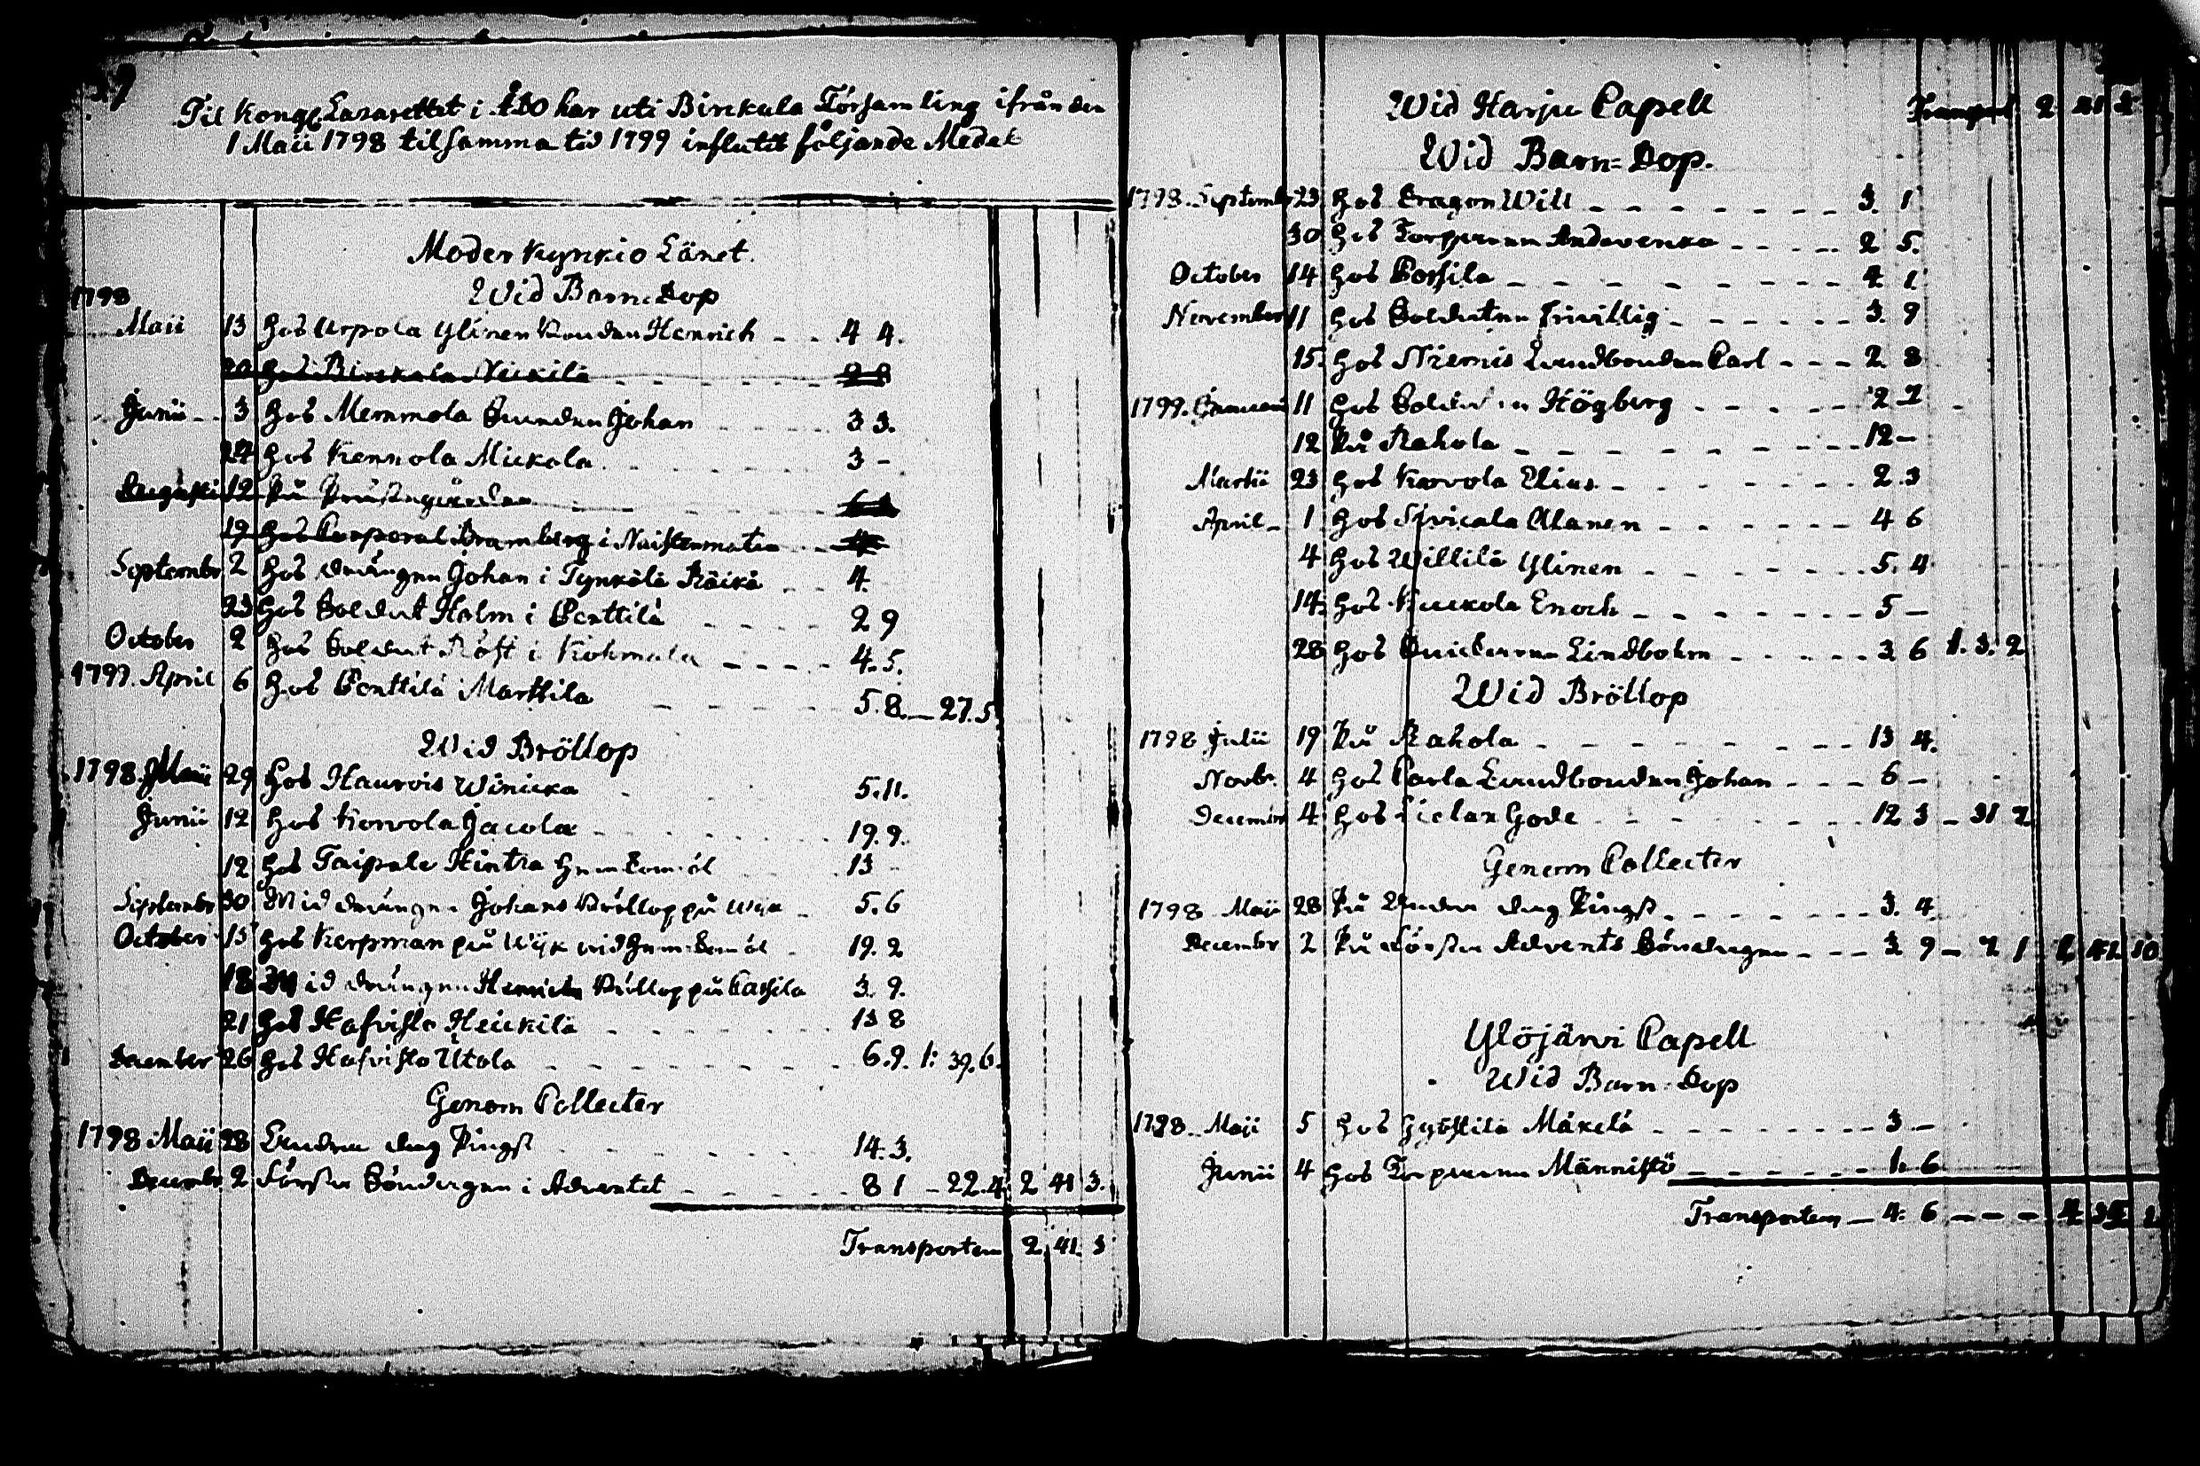 Til Kongl. Lazarettet i Åbo har uti Birckala Församling ifrån den
1 Maii 1798 til samma tid 1799 influtit följande Medel
Moder Kyrkio Länet.
Wid Barn-Dop
1798
Maii 13 hos Urpola Ylinen Bonden Henrich - - 4 4.
20 hos Birckala Nickilä - - - - 2 8
Junii - 3 hos Memmola Bonden Johan - - - 3 3.
24 hos Kennola Mickola - - - - 3 -
Augusti 12 På Prästegården - - - -
19 hos Corporal Bramberg i Naistenmatca - -
Septembr 2 hos drängen Johan i Tynkälä Räikä - - 4.
23 hos Soldat Holm i Penttilä - - - 2 9
October 2 hos Soldat Röst i Kohmala - - - 4. 5.
1799. April 6 hos Penttilä Marttila - - - 5. 8. - 27. 5
Wid Bröllop
1798. Maii 29 hos Haurois Winicka 5. 11.
Junii 12 hos Korvola Jacola - - - - 19. 9.
12 hos Taipale Hintza hemkomöl 13 -
Septembr 30 Wid drängen Johans Bröllop på Wyk - 5. 6
October 15 hos Kerpman på Wyk vid hemkomöl - 19. 2
18 Wid drängen Henrichs Bröllop på Passila 3. 9.
21 hos Hafvisto Heickilä - - - - 13 8
December 26 hos Hafvisto Utola - - - - 6. 9. 1: 39. 6.
Genom Collecter
1798 Maii 28 Andra dag Pingst - - - - 14. 3.
Decembr 2 Första Söndagen i Adventet - - - - 8 1 - 22. 4. 2 41 3.
Transporten 2. 41. 3
Wid Harju Capell Transport 2 41 3
Wid Barn-Dop.
1798. Septembr 23 hos Dragon Will - - - - 3. 1
30 hos Torparen Andevenka - - - 2 5.
October 14 hos Possila - - - - 4 1
November 11 hos Soldaten Frivillig - - - - 3. 9
15. hos Niemis Landbonden Carl - - - 2 8
1799. Januari 11 hos Soldaten Högberg - - - - 2 2
12 På Rahola - - - - 12 -
Martii 23 hos Korvola Elias - - - - 2. 3
April - 1 hos Sivicala Alanen - - - - 4 6
4 hos Willilä Ylinen - - - - 5. 4
14. hos Kuckola Enoch - - - - 5 -
28 hos Lindbohm - - - - 3 6 1. 3. 2
Wid Bröllop
1798 Julii 19 På Rahola - - - - 13 4.
Novbr. 4 hos Parla Landbonden Johan - - - 6 -
December 4 hos Lielax Gode - - - - 12 3 - 31 2
Genom Collecter
1798 Maii 28 På Andra dag Pingst - - - - 3. 4.
December 2 På Första Advents Söndagen - - - 3 9 - 7 1 2 42 10
Ylöjärvi Capell
Wid Barn-Dop
1798. Maii 5 hos Gyöttilä Mäkelä - - - - 3 -
Junii 4 hos Torparen Männistö - - - - 1. 6
Transporten - 4. 6 - - -